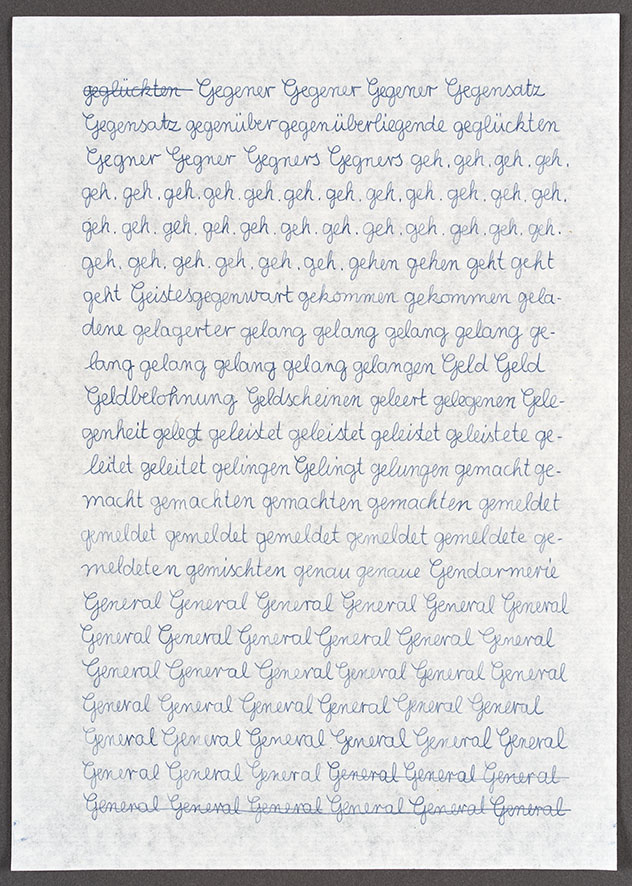 geglückten Gegener Gegener Gegener Gegensatz
Gegensatz gegenüber gegenüberliegende geglückten
Gegner Gegner Gegners Gegners geh. geh. geh. geh.
geh. geh. geh. geh. geh. geh. geh. geh. geh. geh. geh. geh.
geh. geh. geh. geh. geh. geh. geh. geh. geh. geh. geh. geh.
geh. geh. geh. geh. geh. geh. gehen gehen geht geht
geht Geistesgegenwart gekommen gekommen gela-
dene gelagerter gelang gelang gelang gelang ge-
lang gelang gelang gelang gelangen Geld Geld
Geldbelohnung Geldscheinen geleert gelegenen Gele-
genheit gelegt geleistet geleistet geleistet geleistete ge-
leitet geleitet gelingen Gelingt gelungen gemacht ge-
macht gemachten gemachten gemachten gemeldet
gemeldet gemeldet gemeldet gemeldet gemeldete ge-
meldeten gemischten genau genaue Gendarmerie
General General General General General General
General General General General General General
General General General General General General
General General General General General General
General General General General General General
General General General General General General
General General General General General General